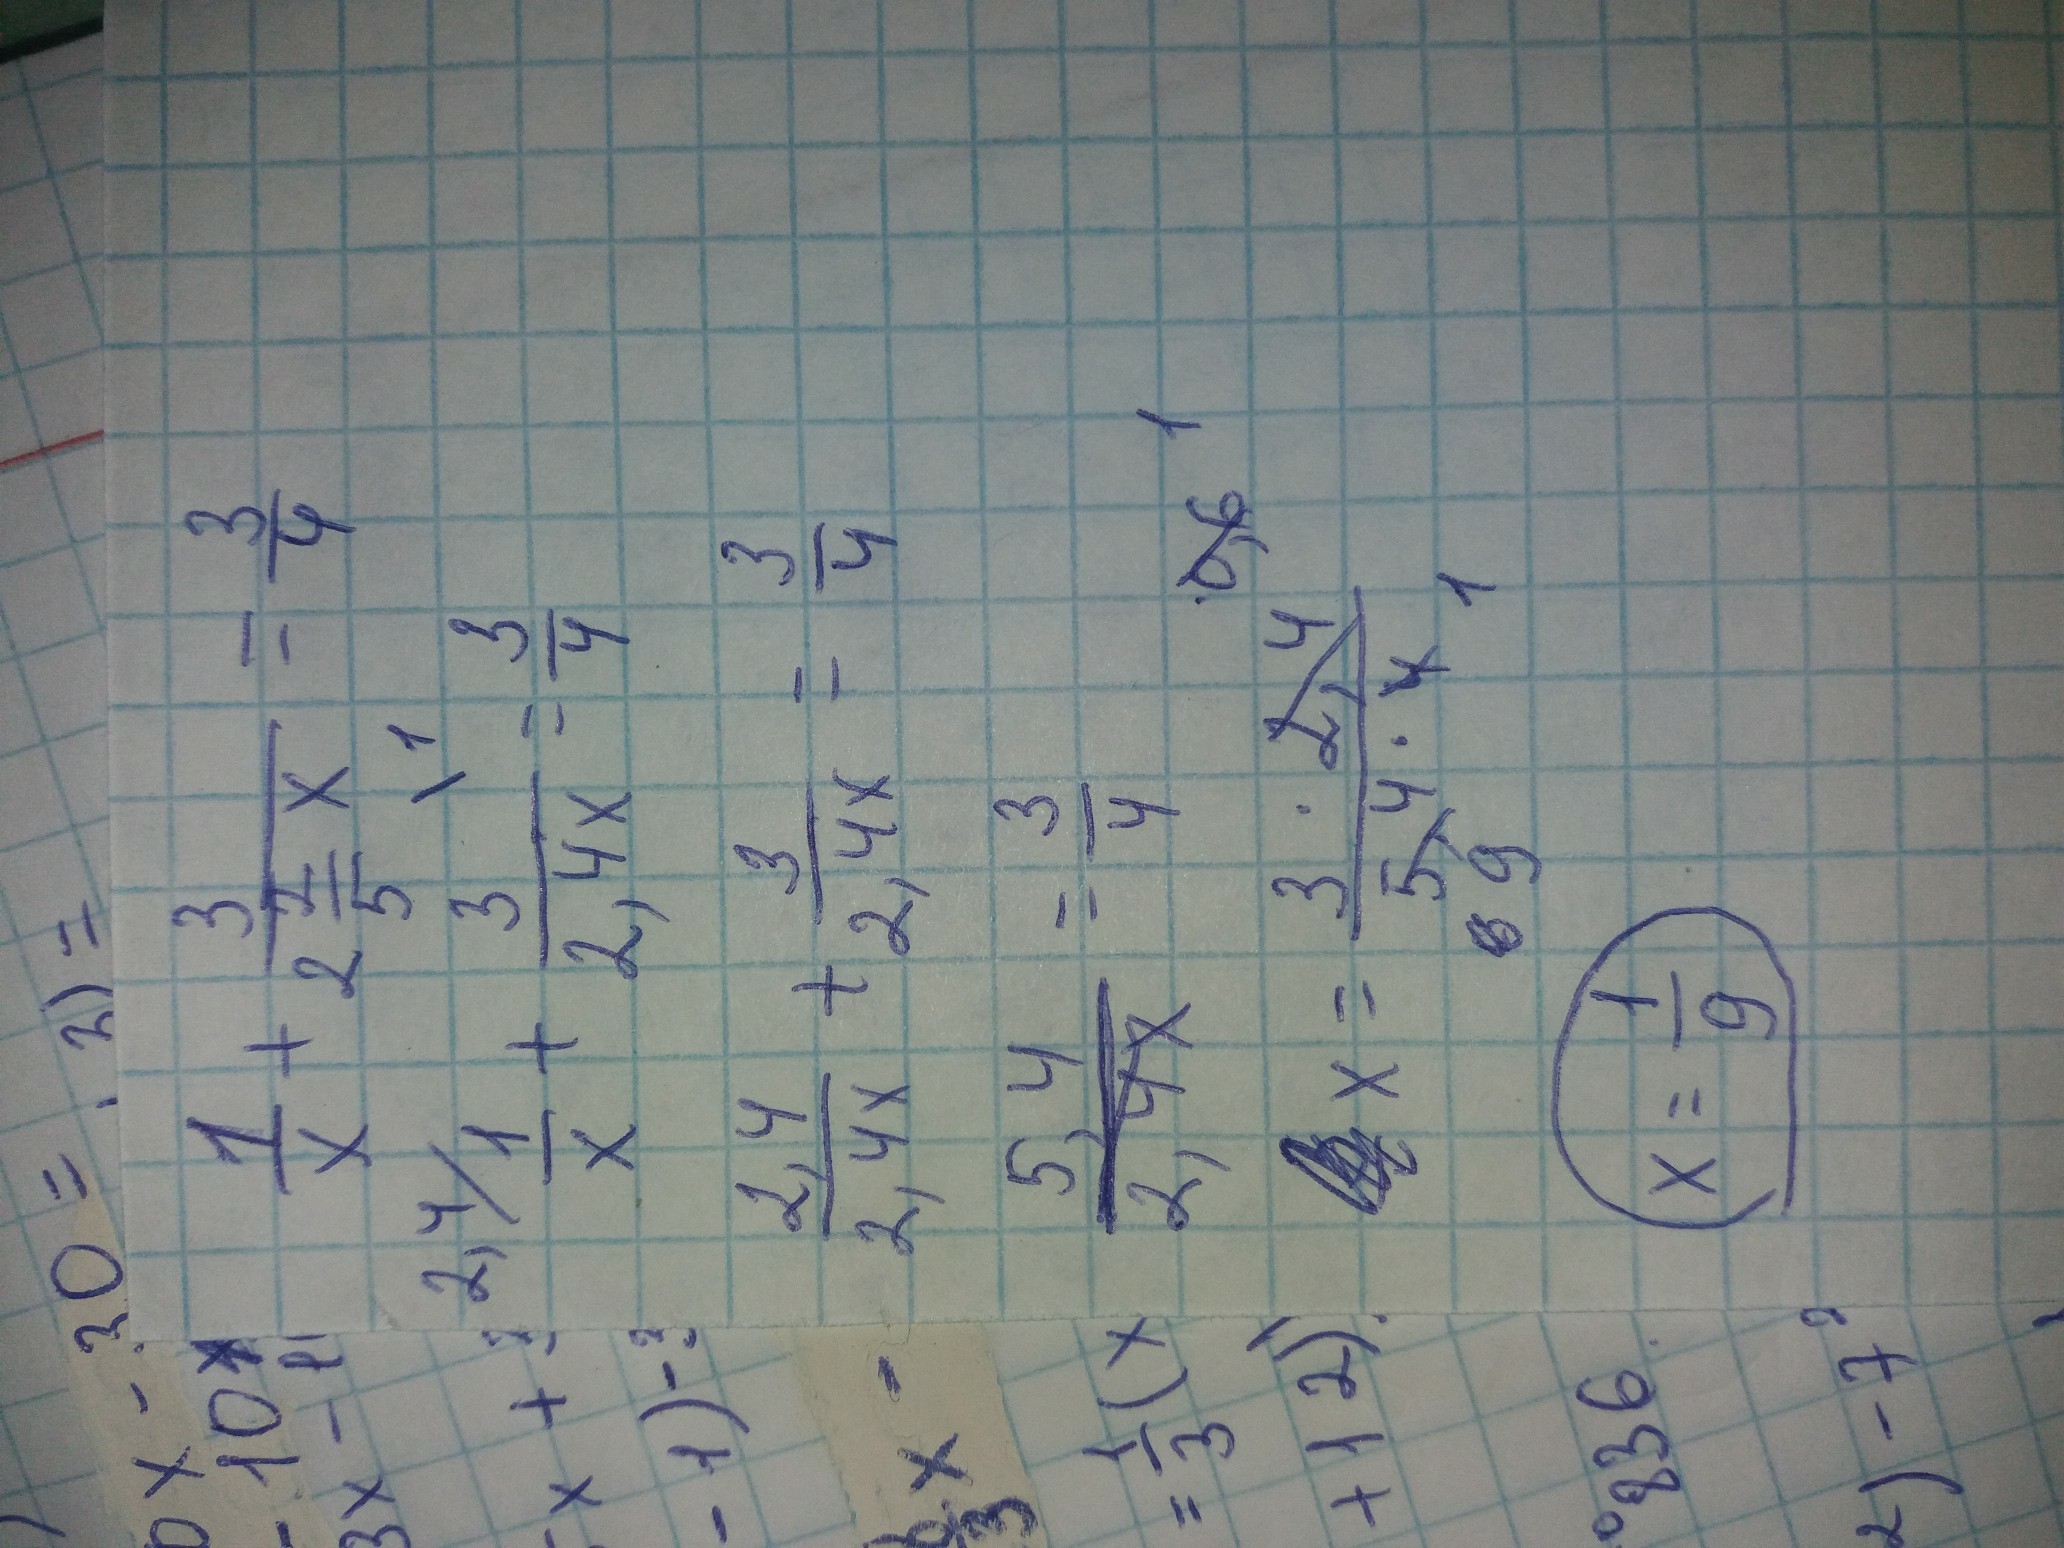 1/x + 3/(2 2/5 x) = 3/4
2,4/ 1/x + 3/(2,4x) \1 = 3/4
2,4/(2,4x) + 3/(2,4x) = 3/4
5,4/(2,4x) = 3/4
x = (3 · 2,4)/(5,4 · 4) 0,6 1
9 1
x = 1/9
2) =
30 =
x -
10x
3x -
x +
- 1) -
x -
= 1/3 (x
+ 12)
836.
2) - 7